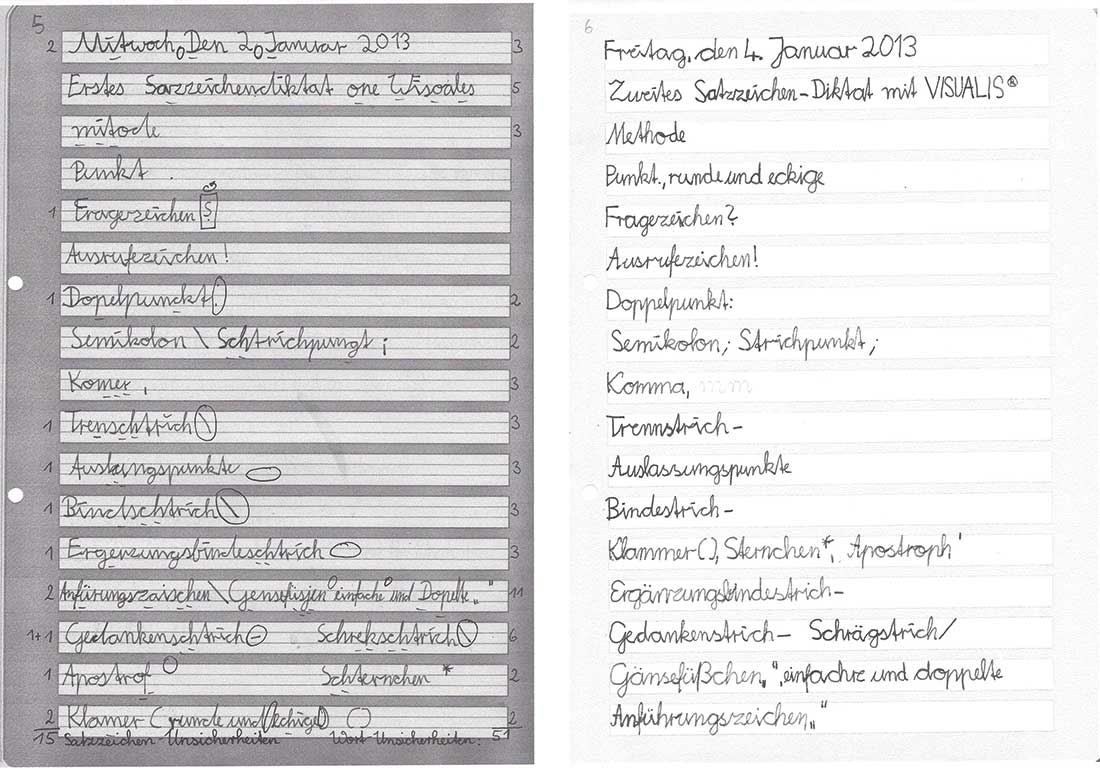 5
2 Mitwoch Den 2 Januar 2013 3
Erstes Sazzeichendiktat one Wisoales 5
mitode 3
Punkt .
1 Fragerzeichen
Ausrufezeichen!
1 Dopelpunckt. 2
Semikolon \ Schtrichpungt ; 2
Komer , 3
1 Trenschtrich \ 3
1 Auslasungspunkte 3
1 Bindschtrich \ 3
1 Ergenzungsbindeschtrich 3
2 Anfürungszaischen \ Gensefüsjen einfache und Dopelte „“ 11
1+1 Gedankenschtrich – Schrekschtrich \ 6
1 Apostrof Schternchen * 2
2 Klamer ( runde und eckige) 2
15 Satzzeichen-Unsicherheiten Wort Unsicherheiten: 51
6
Freitag, den 4. Januar 2013
Zweites Satzzeichen-Diktat mit VISUALIS®
Methode
Punkt., runde und eckige
Fragezeichen?
Ausrufezeichen!
Doppelpunkt:
Semikolon; Strichpunkt;
Komma, mm
Trennstrich -
Auslassungspunkte
Bindestrich -
Klammer(), Sternchen*, Apostroph '
Ergänzungsbindestrich -
Gedankenstrich – Schrägstrich /
Gänsefüßchen„“, einfachre und doppelte
Anführungszeichen„“